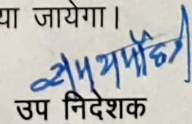 या जायेगा।
उप निदेशक